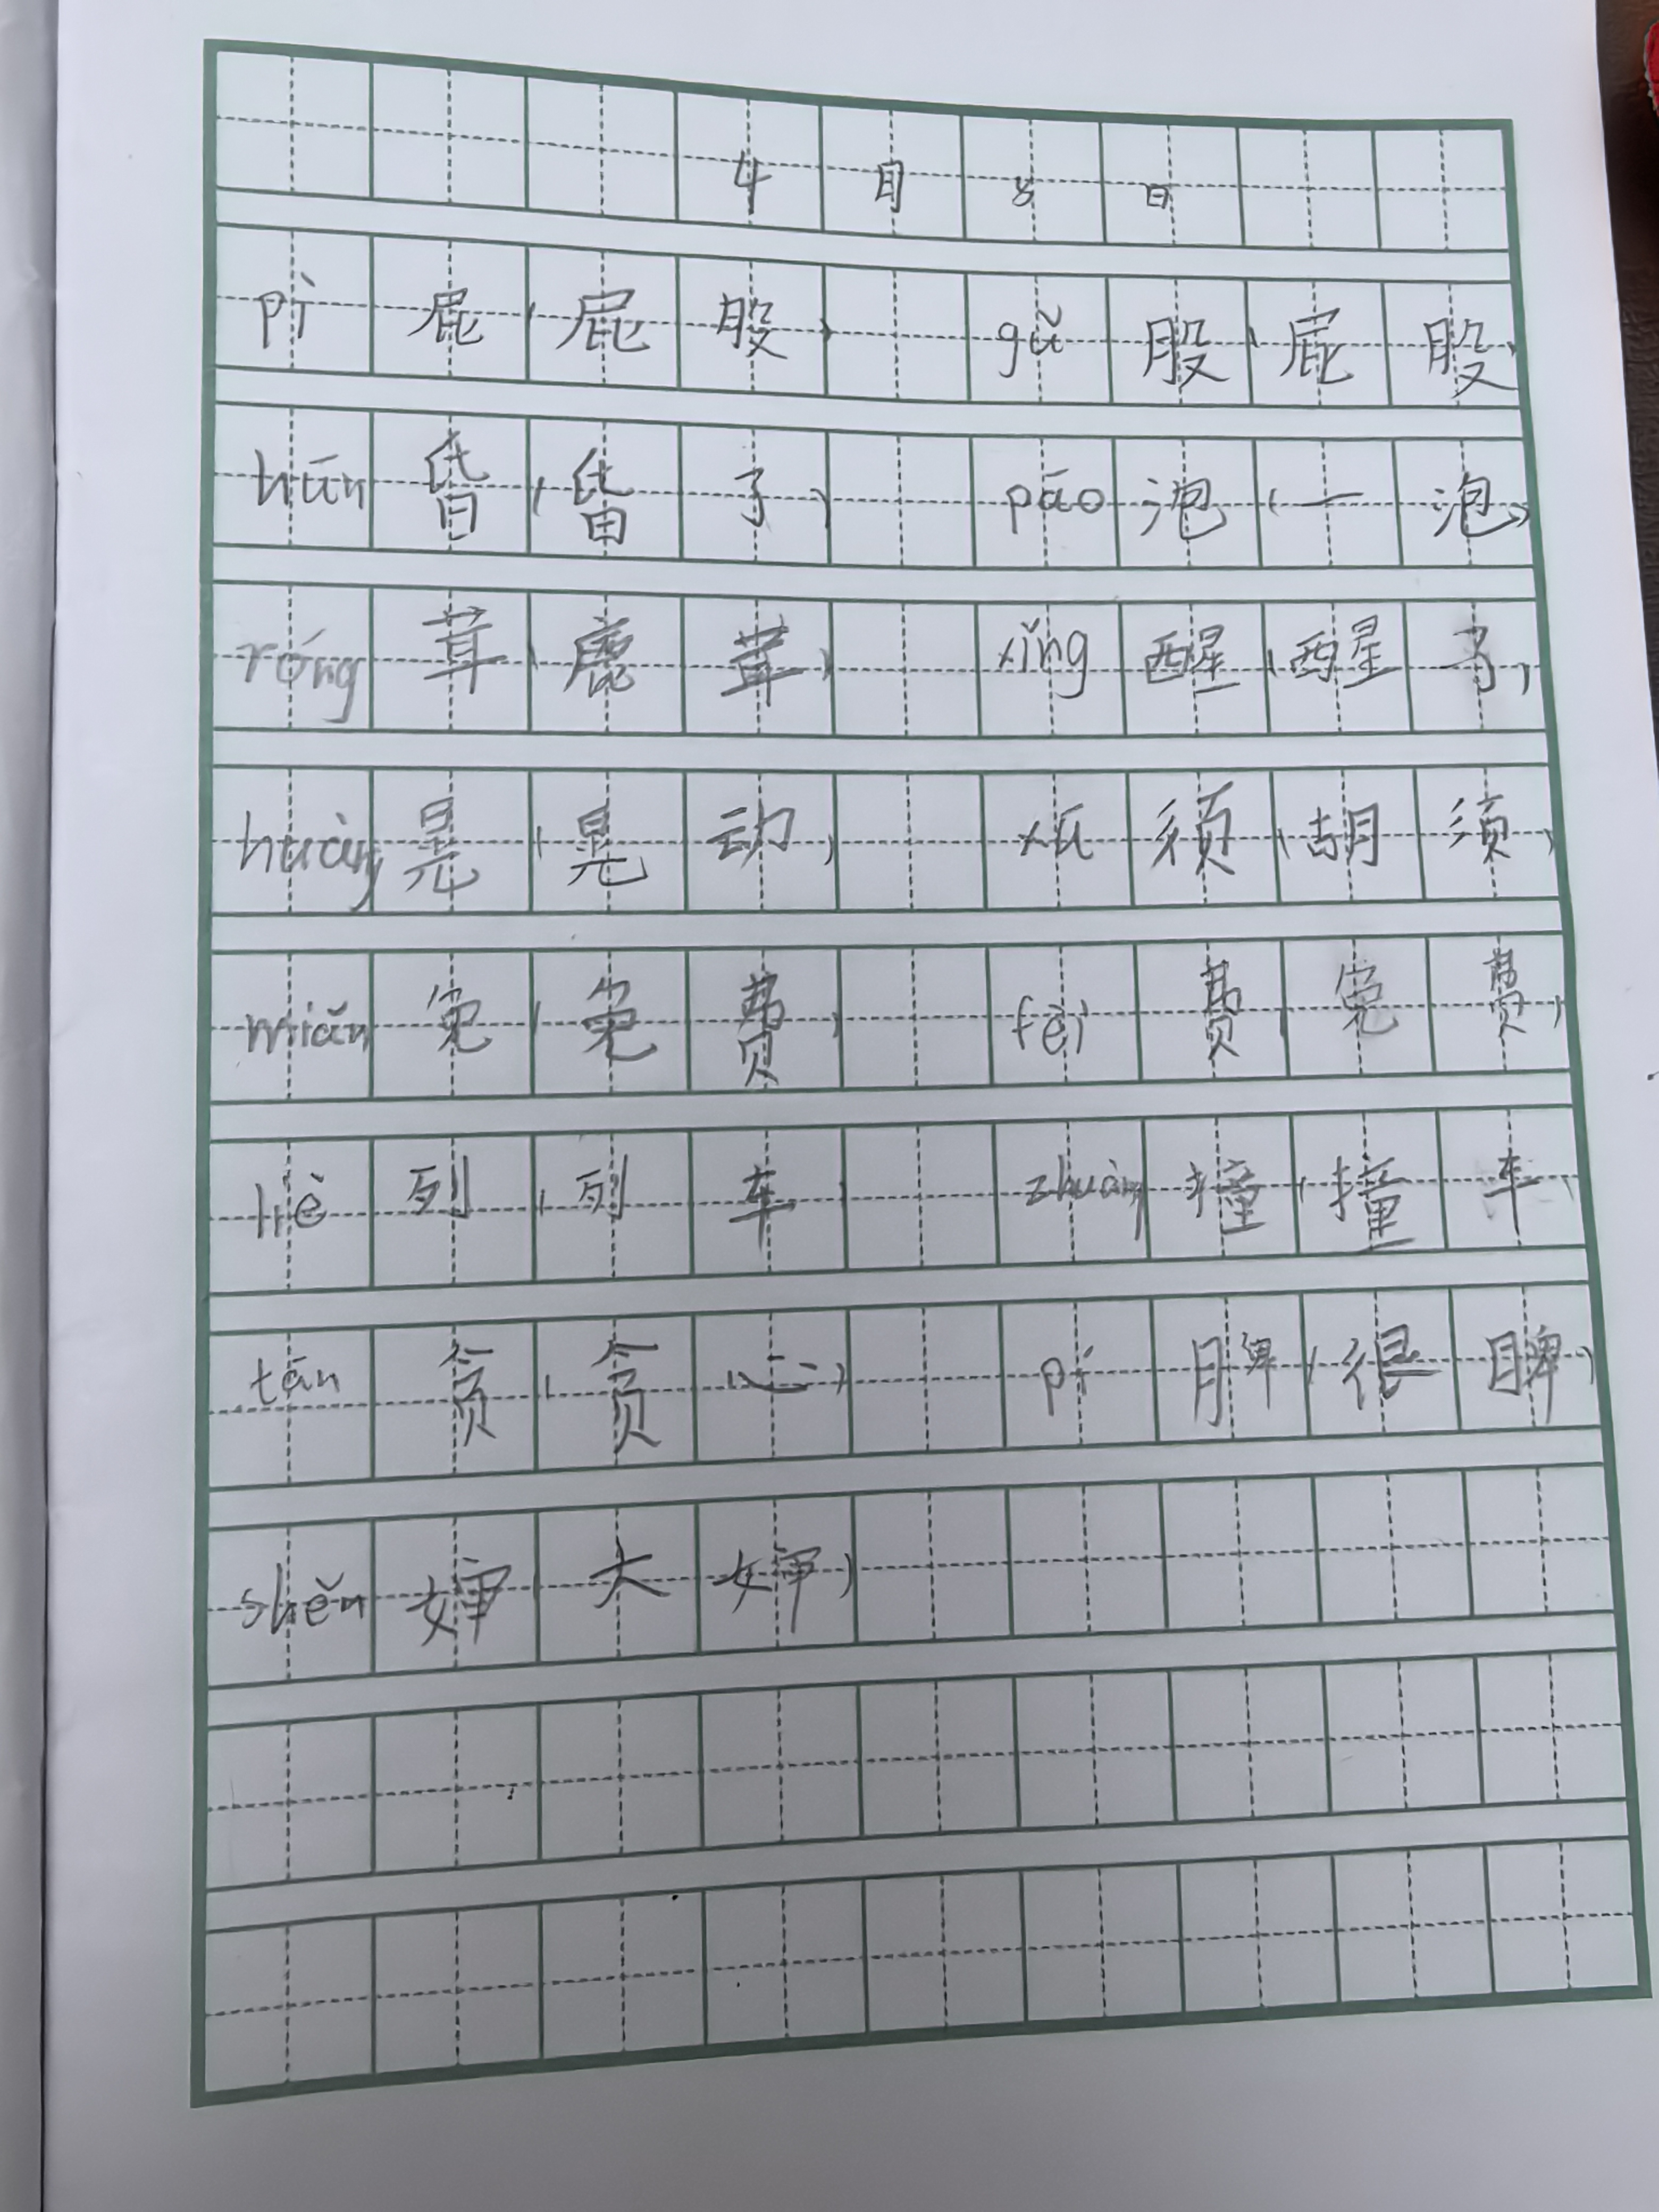 4月8日
pì 屁(屁股) gǔ 股(屁股)
hūn 昏(昏了) pāo 泡(一泡)
róng 茸(鹿茸) xǐng 醒(醒了)
huàng 晃(晃动) xū 须(胡须)
miǎn 免(免费) fèi 费(免费)
liè 列(列车) zhuàng 撞(撞车)
tān 贪(贪心) pí 脾(很脾)
shěn 婶(大婶)